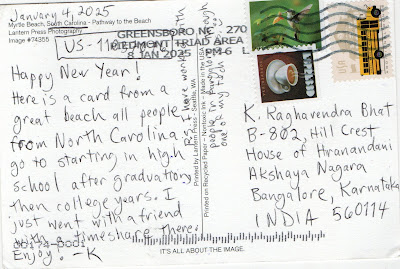 January 4, 2025
Myrtle Beach, South Carolina - Pathway to the Beach
Lantern Press Photography
Image #74355
US-110
GREENSBORO NC 270
PIEDMONT TRIAD AREA
8 JAN 2025 PM 6 L
Happy New Year!
Here is a card from a
great beach all people
from North Carolina
go to starting in high
school after graduation,
then college years. I
just went with a friend
with a timeshare there.
Enjoy! -K
PS I have worked with
people in
one of my
Printed by Lantern Press • Seattle, WA
Printed on Recycled Paper • Nontoxic Ink • Made in
USA
K. Raghavendra Bhat
B-802, Hill Crest
House of Hiranandani
Akshaya Nagara
Bangalore, Karnataka
INDIA 560114
IT'S ALL ABOUT THE IMAGE.